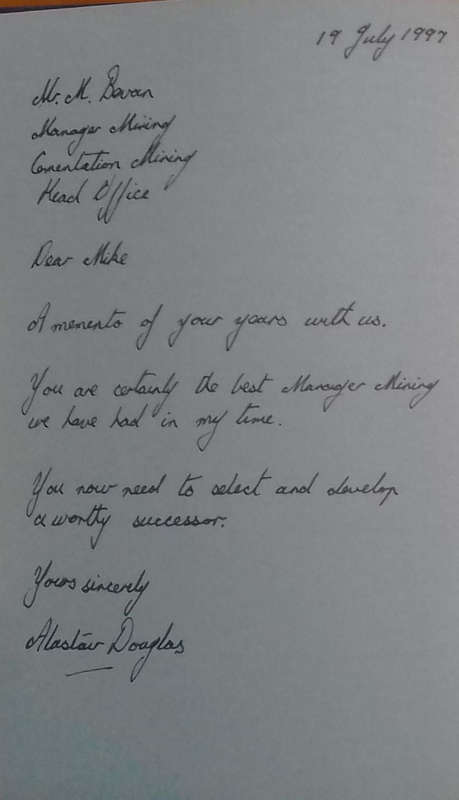 19 July 1997
Mr. M. Bevan
Manager Mining
Cementation Mining
Head Office
Dear Mike
A memento of your years with us.
You are certainly the best Manager Mining
we have had in my time.
You now need to select and develop
a worthy successor.
Yours sincerely
Alastair Douglas